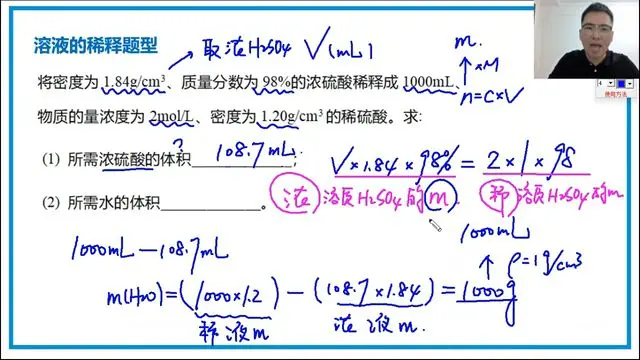 溶液的稀释题型
取浓H2SO4 V(mL)
m.
↑×M
n=c×V
将密度为1.84g/cm³、质量分数为98%的浓硫酸稀释成1000mL、
物质的量浓度为2mol/L、密度为1.20g/cm³的稀硫酸。求:
?
(1) 所需浓硫酸的体积 108.7mL ;
V×1.84×98% = 2×1×98
浓 溶质H2SO4的m. 稀 溶质H2SO4的m
(2) 所需水的体积____________。
1000mL
↑ ρ=1g/cm3
1000mL-108.7mL
m(H2O)=(1000×1.2)-(108.7×1.84)=1000g
稀液m 浓液m.